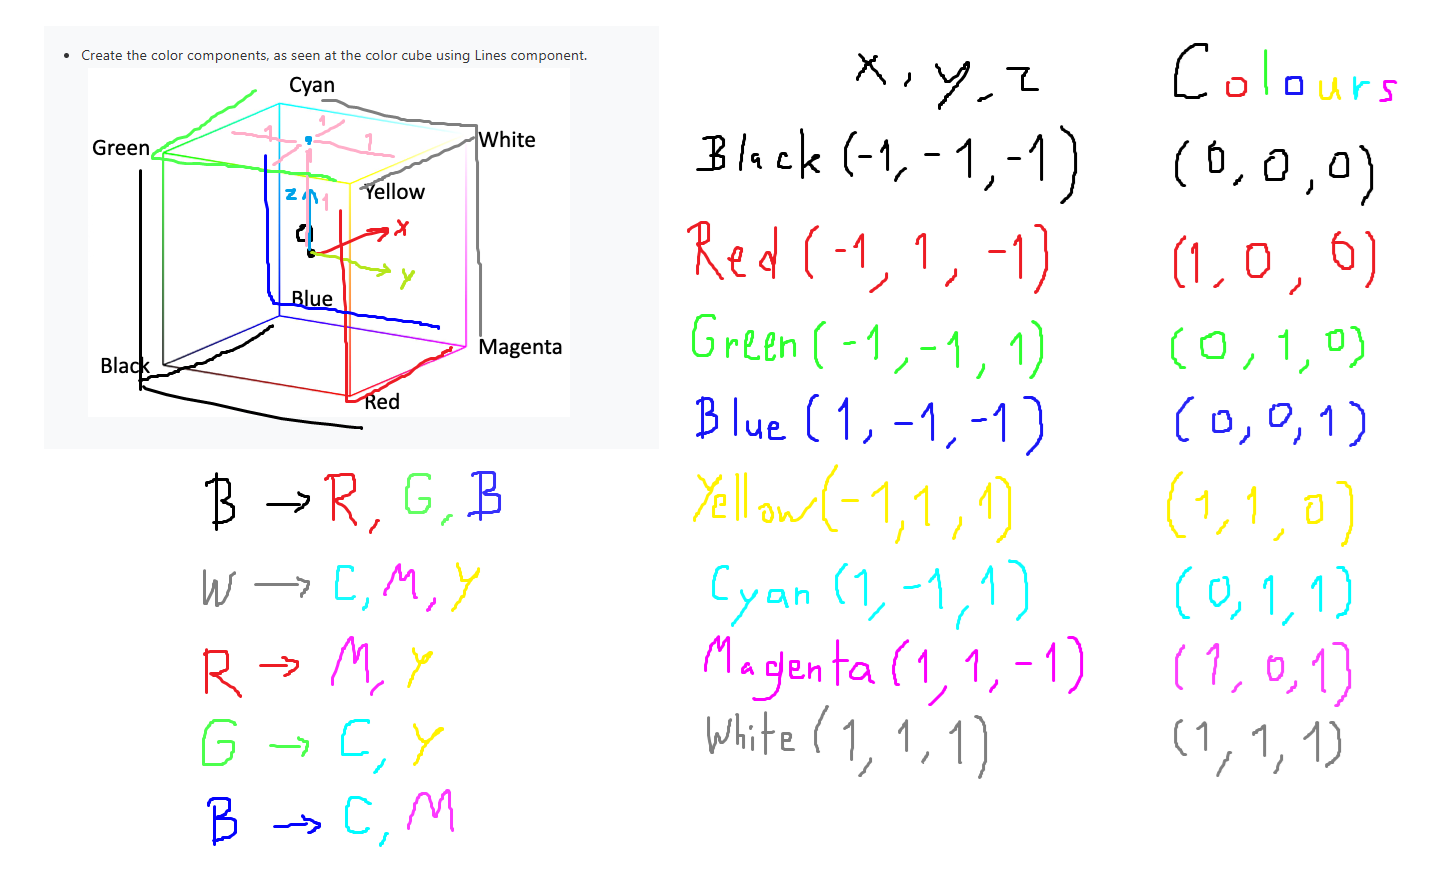 • Create the color components, as seen at the color cube using Lines component.
Cyan
Green
White
Yellow
1
1
1
z
1
O
x
y
Blue
Black
Magenta
Red
B → R, G, B
W → C, M, Y
R → M, Y
G → C, Y
B → C, M
x, y, z
Colours
Black (-1, -1, -1) (0, 0, 0)
Red (-1, 1, -1) (1, 0, 0)
Green (-1, -1, 1) (0, 1, 0)
Blue (1, -1, -1) (0, 0, 1)
Yellow (-1, 1, 1) (1, 1, 0)
Cyan (1, -1, 1) (0, 1, 1)
Magenta (1, 1, -1) (1, 0, 1)
White (1, 1, 1) (1, 1, 1)